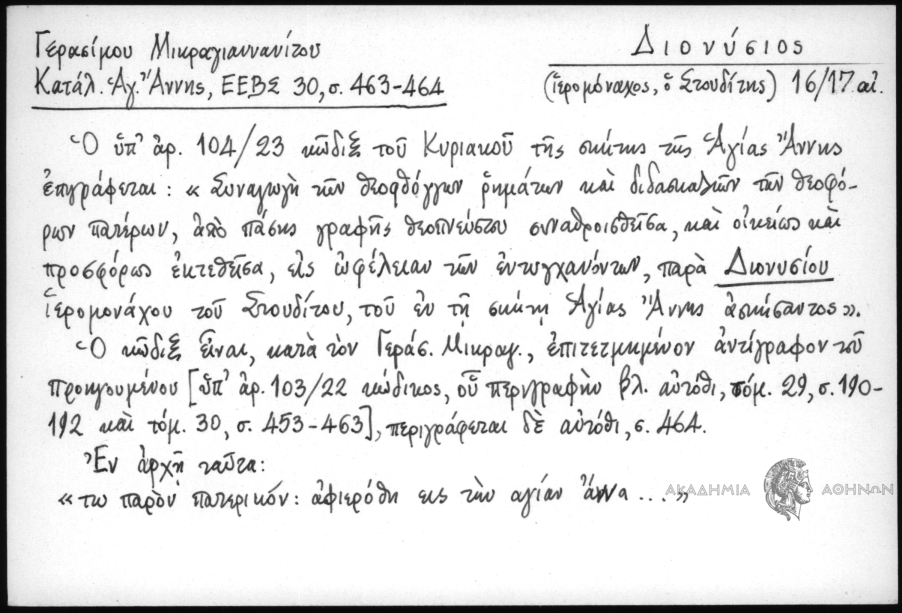 Γερασίμου Μικραγιαννανίτου
Κατάλ. Ἁγ. Ἄννης, ΕΕΒΣ 30, σ. 463-464
Διονύσιος
(ἱερομόναχος, ὁ Στουδίτης) 16/17 αἰ.
Ὁ ὑπ' ἀρ. 104/23 κῶδιξ τοῦ Κυριακοῦ τῆς σκήτης τῆς Ἁγίας Ἄννης
ἐπιγράφεται: « Συναγωγὴ τῶν θεοφθόγγων ῥημάτων καὶ διδασκαλιῶν τῶν θεοφό-
ρων πατέρων, ἀπὸ πάσης γραφῆς θεοπνεύστου συναθροισθεῖσα, καὶ οἰκείως καὶ
προσφόρως ἐκτεθεῖσα, εἰς ὠφέλειαν τῶν ἐντυγχανόντων, παρὰ Διονυσίου
ἱερομονάχου τοῦ Στουδίτου, τοῦ ἐν τῇ σκήτῃ Ἁγίας Ἄννης ἀσκήσαντος».
Ὁ κῶδιξ εἶναι, κατὰ τὸν Γεράσ. Μικραγ., ἐπιτετμημένον ἀντίγραφον τοῦ
προηγουμένου [ὑπ' ἀρ. 103/22 κώδικος, οὗ περιγραφὴν βλ. αὐτόθι, τόμ. 29, σ. 190-
192 καὶ τόμ. 30, σ. 453-463], περιγράφεται δὲ αὐτόθι, σ. 464.
Ἐν ἀρχῇ ταῦτα:
« τω παρὸν πατερικόν: αφιερόθη εις τὴν αγίαν άννα ... »
ΑΚΑΔΗΜΙΑ ΑΘΗΝΩΝ